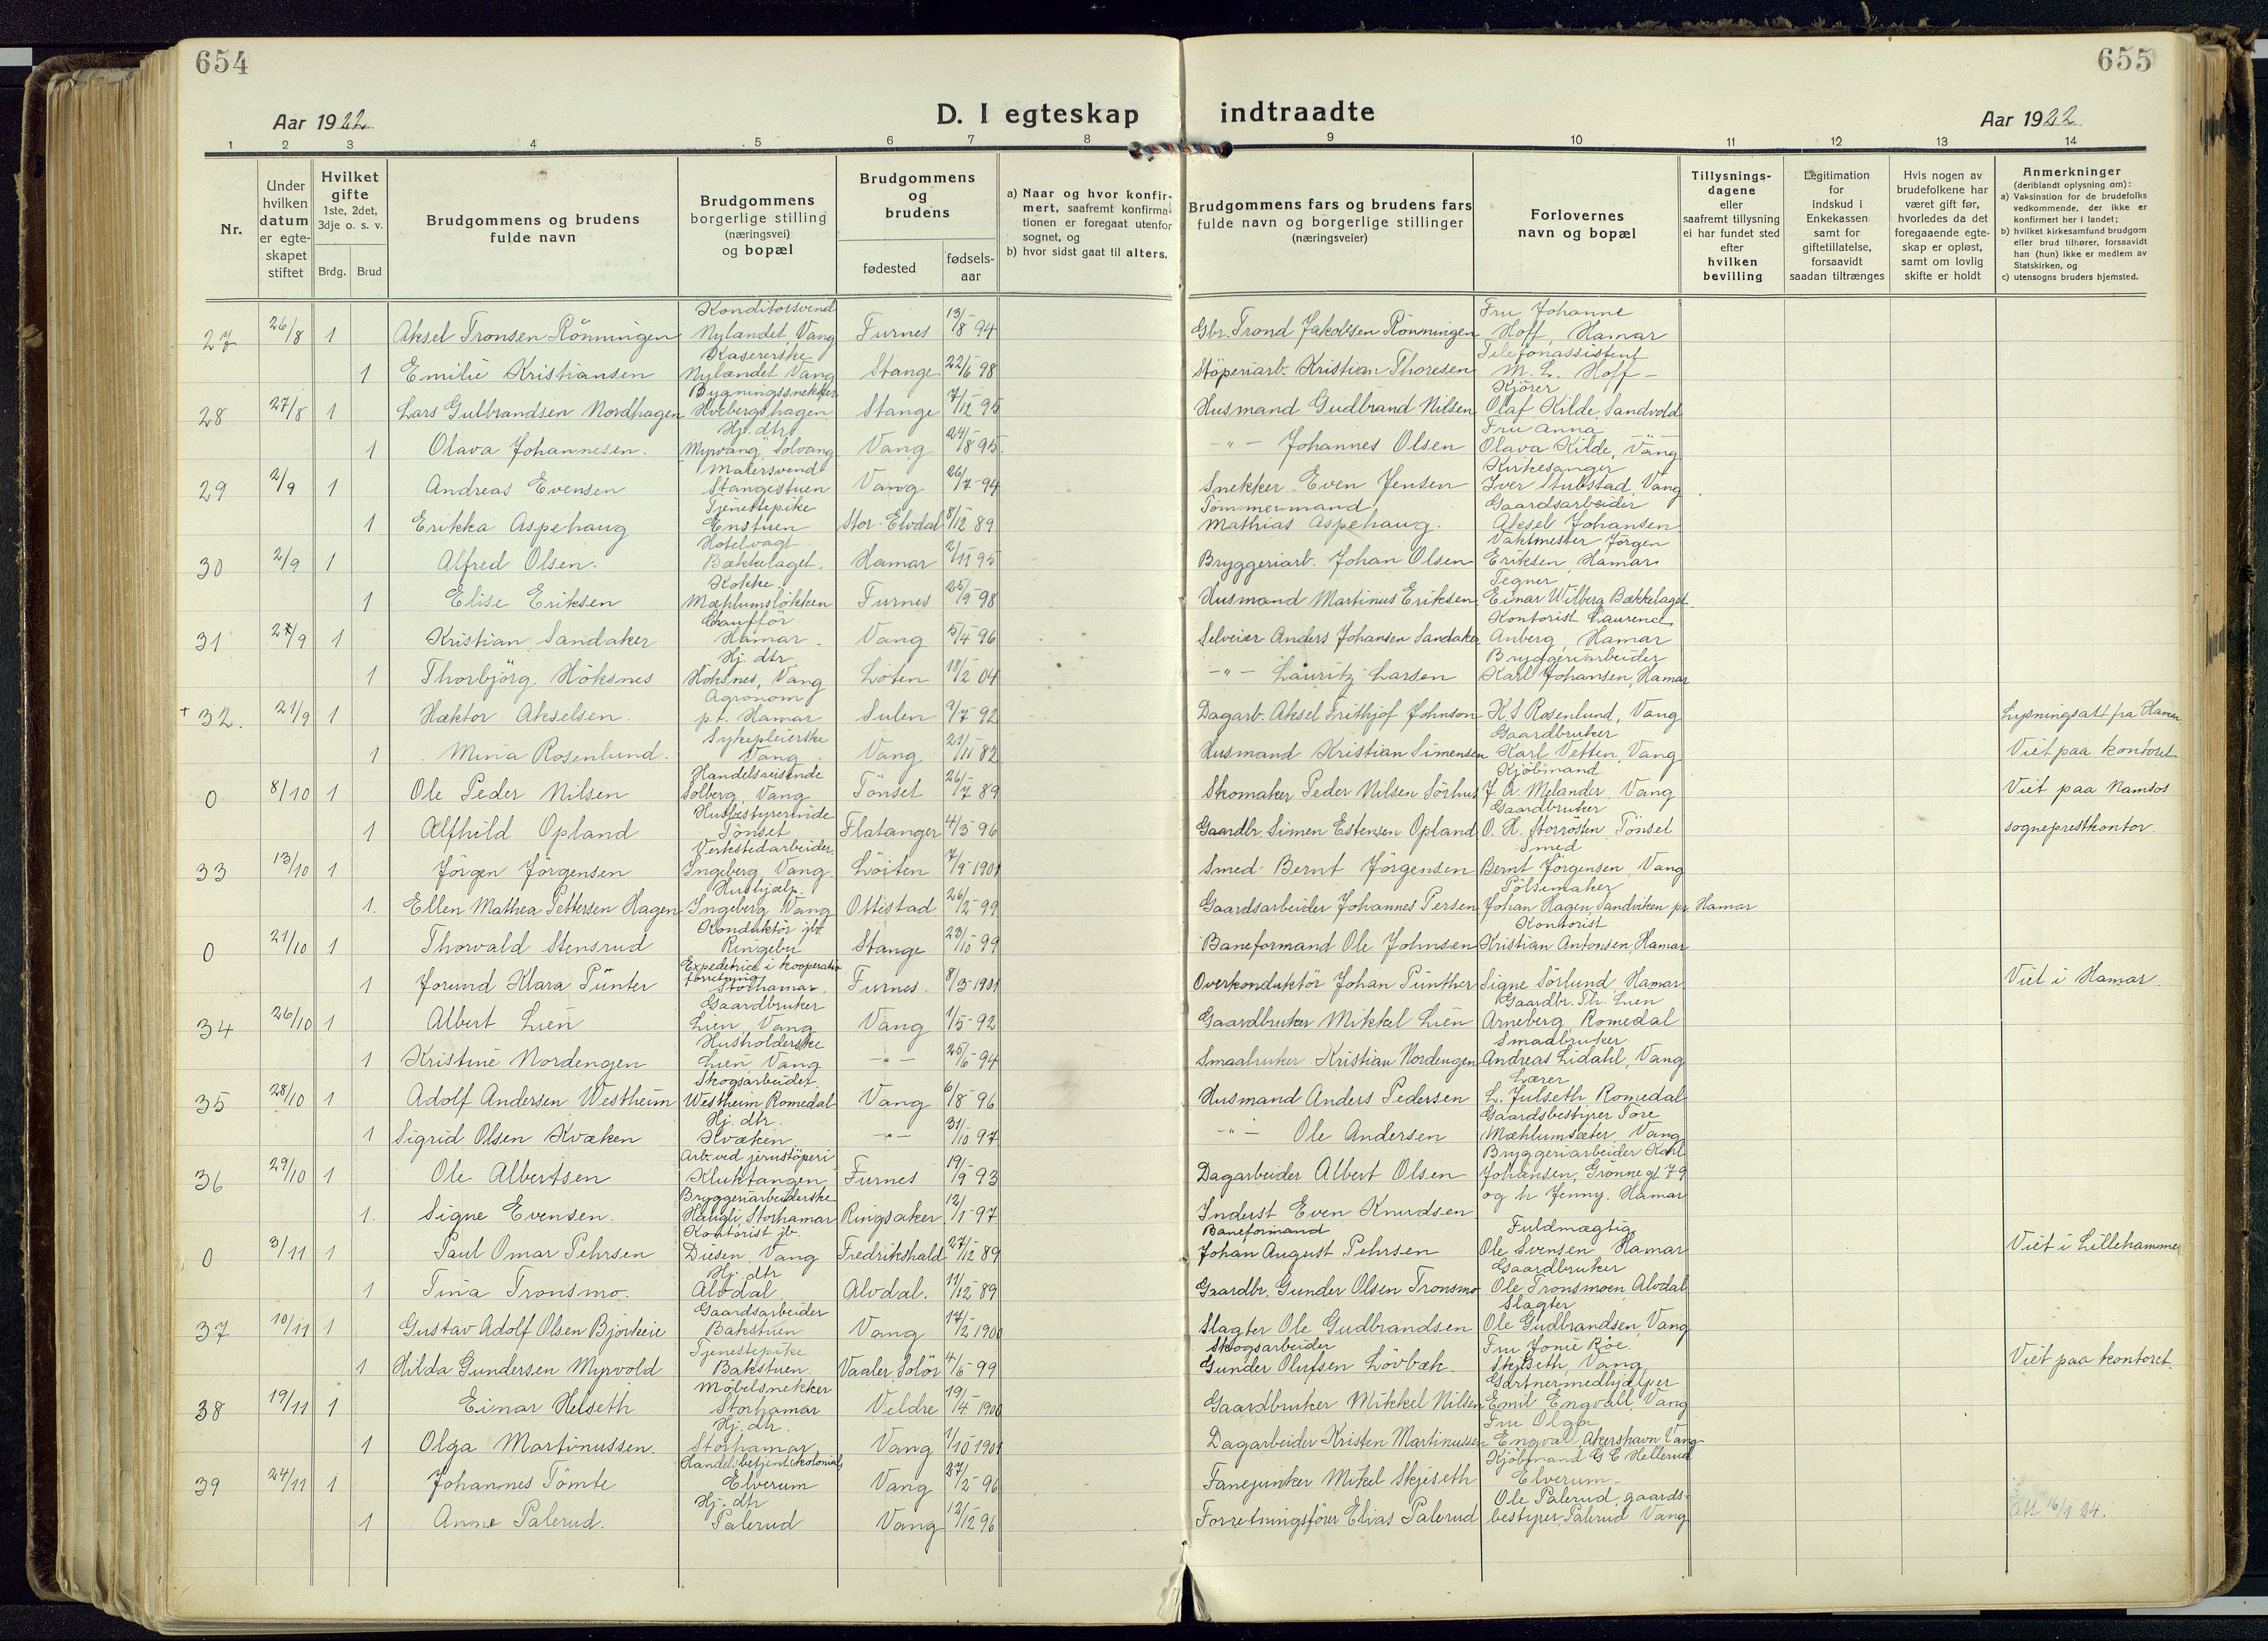 654
655
Aar 1922
D. I egteskap indtraadte
Aar 1922
1 2 3 4 5 6 7 8 9 10 11 12 13 14
Nr.
Under hvilken datum er egteskapet stiftet
Hvilket gifte 1ste, 2det, 3dje o. s. v.
Brdg. Brud
Brudgommens og brudens fulde navn
Brudgommens borgerlige stilling (næringsvei) og bopæl
Brudgommens og brudens
fødested
fødselsaar
a) Naar og hvor konfirmert, saafremt konfirmationen er foregaat utenfor sognet, og
b) hvor sidst gaat til alters.
Brudgommens fars og brudens fars fulde navn og borgerlige stillinger (næringsveier)
Forlovernes navn og bopæl
Tillysningsdagene eller saafremt tillysning ei har fundet sted efter hvilken bevilling
Legitimation for indskud i Enkekassen samt for giftetillatelse, forsaavidt saadan tiltrænges
Hvis nogen av brudefolkene har været gift før, hvorledes da det foregaaende egteskap er opløst, samt om lovlig skifte er holdt
Anmerkninger (deriblandt oplysning om):
a) Vaksination for de brudefolks vedkommende, der ikke er konfirmert her i landet;
b) hvilket kirkesamfund brudgom eller brud tilhører, forsaavidt han (hun) ikke er medlem av Statskirken, og
c) utensogns bruders hjemsted.
27 26/8 1 Aksel Tronsen Rönningen Konditorsvend Nylandet, Vang Furnes 13/8 94 Gbr. Trond Jakobsen Rönningen Fru Johanne Hoff, Hamar
1 Emilie Kristiansen Kasererske Nylandet Vang Stange 22/6 98 Stöperiarb. Kristian Thoresen Telefonassistent M. L. Hoff
28 27/8 1 Lars Gulbrandsen Nordhagen Bygningssnekker Hvebergshagen Stange 7/12 95 Husmand Gudbrand Nilsen Kjörer Olaf Kilde, Sandvold
1 Olava Johannesen. Hj. dtr. Myrvang, Solvang Vang 24/8 95. -"- Johannes Olsen Fru Anna Olava Kilde, Vang
29 2/9 1 Andreas Evensen Malersvend Stangestuen Vang 26/7-94 Snekker Even Jensen Kirkesanger Iver Stubstad, Vang
1 Erikka Aspehaug Tjenestepike Enstuen Stor-Elvdal 8/12 89 Tömmermand Mathias Aspehaug. Gaardsarbeider Aksel Johansen
30 2/9 1 Alfred Olsen. Hotelvagt Bækkelaget. Hamar 2/11 95 Bryggeriarb. Johan Olsen Vaktmester Jörgen Eriksen, Hamar
1 Elise Eriksen Kokke Mæhlumslökken Furnes 25/9-98 Husmand Martinus Eriksen Tegner Einar Wilberg Bækkelaget.
31 /9 1 Kristian Sandaker Chaufför Hamar Vang 5/4 96 Selveier Anders Johansen Sandaker Kontorist Laurend Anberg, Hamar
1 Thorbjörg Höksnes Hj. dtr. Höksnes, Vang Löten 18/2 04 -"- Lauritz Larsen Bryggeriarbeider Karl Johansen, Hamar
+ 32. 21/9 1 Hæktor Akselsen. Agronom p.t. Hamar Sulen 9/7-92 Dagarb. Aksel Frithjof Johnson K S Rosenlund, Vang Lysningsatt fra Hamar
1 Mina Rosenlund. Sykepleierske Vang Vang 21/11 82 Husmand Kristian Simensen Gaardbruker Karl Vetten, Vang Viet paa kontoret
0 8/10 1 Ole Peder Nilsen Handelsreisende Solberg, Vang Tönset 26/7 89 Skomaker Peder Nilsen Sörhus Kjöbmand J. A. Melander, Vang Viet paa Namsos
1 Alfhild Opland Husbestyrerinde Tönset Flatanger 4/3 96 Gaardbr. Simen Estensen Opland Gaardbruker O. H. Storrösten, Tönset sogneprestkontor.
33 13/10 1 Jörgen Jörgensen Verkstedarbeider Ingeberg, Vang Löiten 7/9-1901 Smed Bernt Jörgensen Smed Bernt Jörgensen, Vang
1. Ellen Mathea Pettersen Hagen Hushjælp. Ingeberg, Vang Ottestad 26/2-99 Gaardsarbeider Johannes Persen Pölsemaker Johan Hagen, Sandviken pr. Hamar
0 21/10 1 Thorvald Stensrud Konduktör jb. Ringebu Stange 23/10-99 Baneformand Ole Johnsen Kontorist Kristian Antonsen, Hamar
1 Jorund Klara Pünter Expeditrice i kooperativ forretning Storhamar. Furnes. 8/3-1901 Overkonduktör Johan Pünther Signe Sörlund, Hamar Viet i Hamar.
34 26/10 1 Albert Lien Gaardbruker Lien, Vang Vang 1/5-92 Gaardbruker Mikkel Lien Gaardbr. Th. Lien Arneberg, Romedal
1 Kristine Nordengen Husholderske Lien, Vang -"- 25/6-94 Smaabruker Kristian Nordengen Smaabruker Andreas Lidahl, Vang
35 28/10 1 Adolf Andersen Westheim Skogsarbeider. Westheim Romedal Vang 6/8-96 Husmand Anders Pedersen Lærer L. Julseth Romedal
1 Sigrid Olsen Kvæken Hj. dtr. Kvæken -"- 31/10 97 -"- Ole Andersen Gaardsbestyrer Tore Mæhlumsæter, Vang
36 29/10 1 Ole Albertsen Arb. ved jernstöperi Kluktangen Furnes 19/9 93 Dagarbeider Albert Olsen Bryggeriarbeider Karl Johansen, Grönnegt. 79
1. Signe Evensen. Bryggeriarbeiderske Haugli, Storhamar Ringsaker 12/1-97 Inderst Even Knudsen og h Jenny. Hamar
0 3/11 1 Paul Omar Pehrsen Kontorist jb. Diesen, Vang Fredrikshald 27/12 89 Baneformand Johan August Pehrsen Fuldmægtig Ole Svensen Hamar Viet i Lillehammer
1 Tina Tronsmo. Hj. dtr Alvdal Alvdal. 11/12 89 Gaardbr. Gunder Olsen Tronsmo Gaardbruker Ole Tronsmoen, Alvdal
37 10/11 1 Gustav Adolf Olsen Björkeie Gaardsarbeider Bakstuen Vang 17/2 1900 Slagter Ole Gudbrandsen Slagter Ole Gudbrandsen, Vang
1 Hilda Gundersen Myrvold Tjenestepike Bakstuen. Vaaler, Solör 4/6-99 Skogsarbeider Gunder Olufsen Lövbæk Fru Jonie Röe Skjeseth, Vang Viet paa kontoret.
38 19/11 1 Einar Helseth Möbelsnekker Storhamar Veldre 19/4 1900 Gaardbruker Mikkel Nilsen Gartnermedhjælper Emil Engvall, Vang
1 Olga Martinussen. Hj. dtr. Storhamar Vang 1/10 1901 Dagarbeider Kristen Martinussen Fru Olga Engval, Akershavn Vang
39 24/11 1 Johannes Tömte Handelsbetjent (kolonial) Elverum Vang 27/2-96 Fanejunker Mikel Skjeseth Kjöbmand G E Hellerud Elverum
1 Anne Palerud. Hj. dtr Palerud Vang 12/12 96 Forretningsförer Elias Palerud Ole Palerud, gaardsbestyrer Palerud Vang Att 16/9 24.